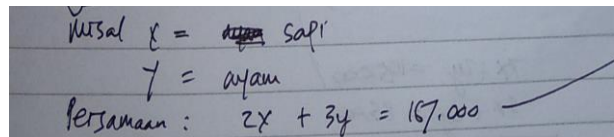 Misal x = sapi
y = ayam
Persamaan : 2x + 3y = 167.000